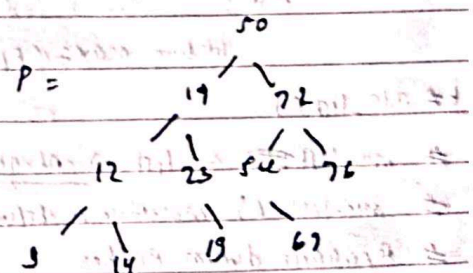 50
P =
19 72
12 23 54 76
9 14 19 67